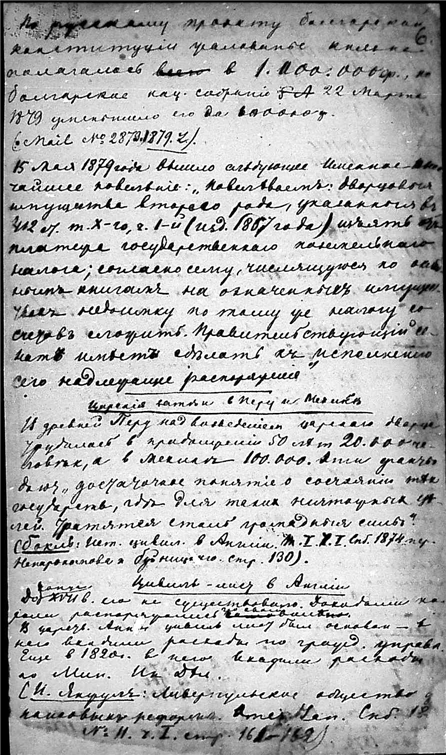 По русскому проекту болгарской
конституции жалованье князю
полагалось в 1.200.000 фр., но
болгарское нац. собрание 22 Марта
1879 уменьшило его до 600000 ф.
(Mail № 2873. 1879 г.)
15 Мая 1879 года вышло следующее Именное
чайшее повеление: "Повелеваем: дворцовыя
имущества втораго рода, указанныя в
ст. т. X-го, ч. 1-й (изд. 1857 года) изъять от
платежа государственнаго поземельнаго
налога; согласно сему, числящуюся по
книгам на означенных имуще
ствах недоимку по тому же налогу со
счетов сложить. Правительствующий се
нат имеет сделать к исполнению
сего надлежащие распоряжения"
Царския в Перу и Мексике
В древней Перу над возведением царскаго дворца
трудилось в продолжении 50 лет 20.000 че
ловек, а в Мексике 100.000. Эти факты
дают "достаточное понятие о состоянии тех
государств, где для таких ничтожных це
лей тратятся столь громадныя силы"
(Бокль: Ист. цивил. в Англии, т. I Спб. 1874 пер.
Ненарокомова стр. 130).
Цивиль-лист в Англии
До конца XVII в. его не существовало.
В царств. Анны цивиль лист был основан - в
него входили расходы по гражд. управл.
Еще в 1820 г. в него входили расходы
по Мин. Ин. Дел.
(И. Янжул: Ливерпульское общество
финансовых реформ. Отеч. Зап. Спб. 18
№ 11. ч. I. стр. 161-162)
6